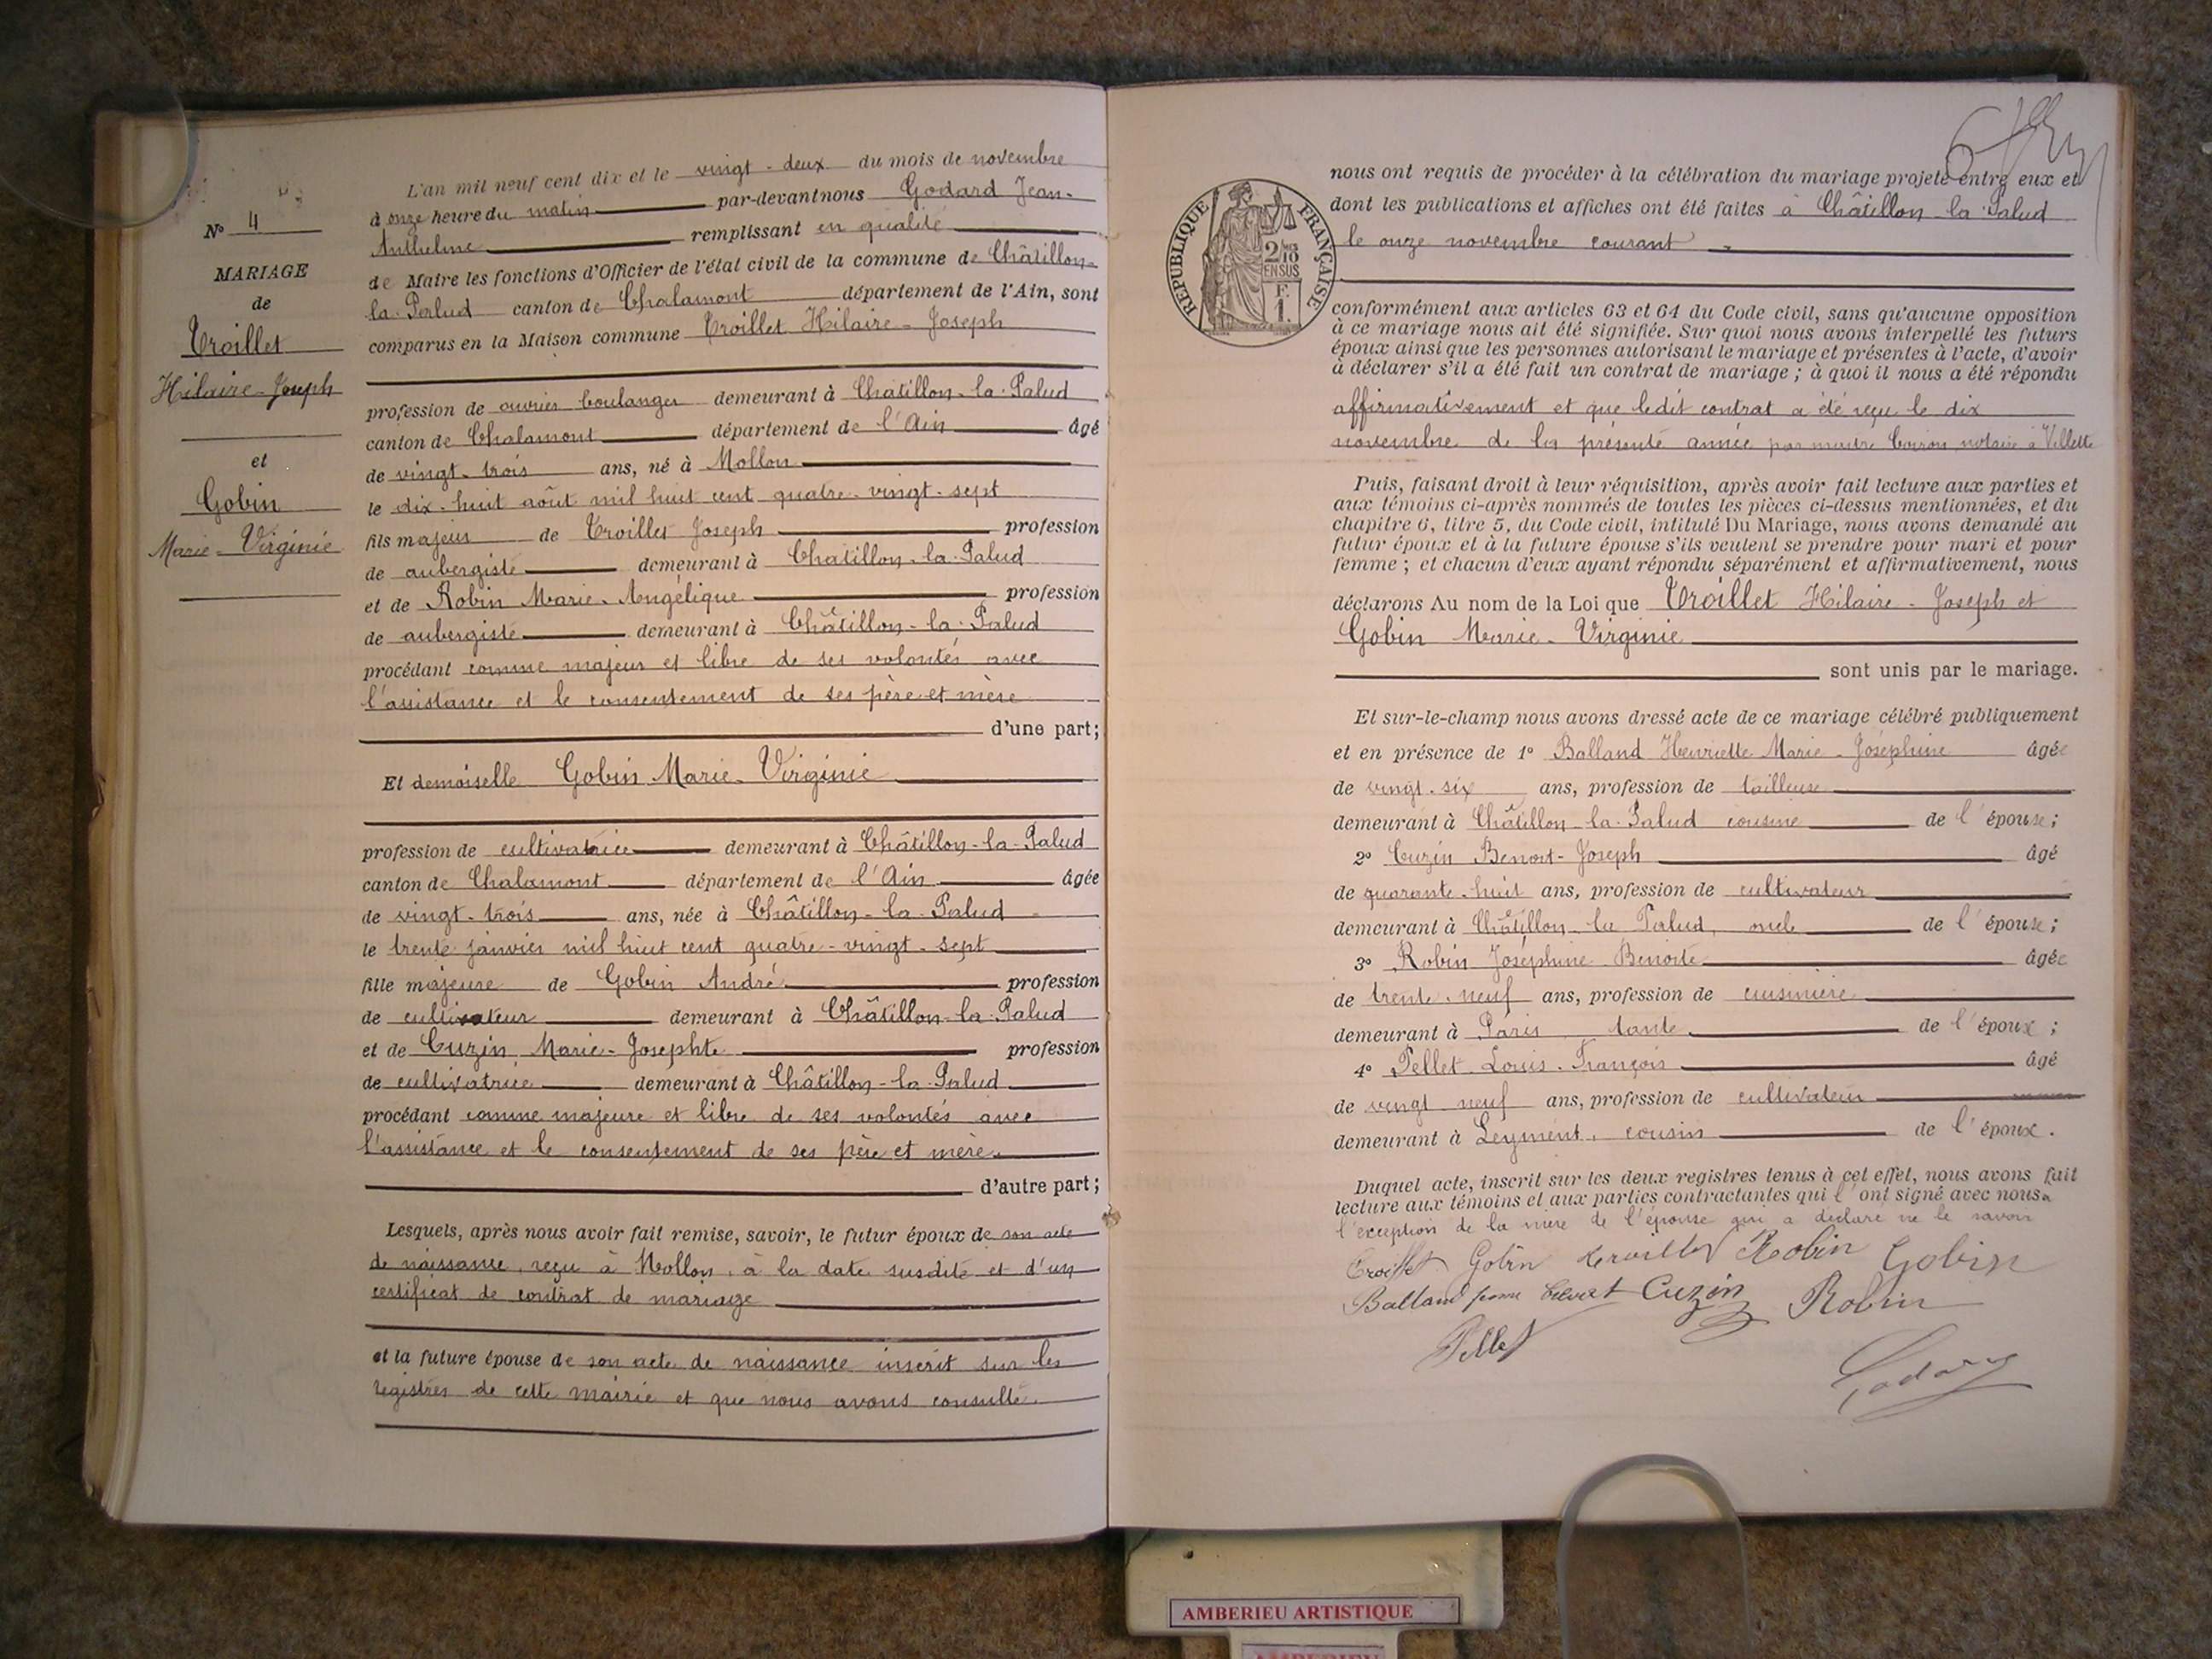 N° 4
MARIAGE
de
Troillet
Hilaire-Joseph
et
Gobin
Marie-Virginie
L'an mil neuf cent dix et le vingt-deux du mois de novembre
à onze heure du matin par-devant nous Godard Jean-
Anthelme remplissant en qualité
de Maire les fonctions d'Officier de l'état civil de la commune de Châtillon-
la-Palud canton de Chalamont département de l'Ain, sont
comparus en la Maison commune Troillet Hilaire-Joseph
profession de ouvrier boulanger demeurant à Châtillon-la-Palud
canton de Chalamont département de l'Ain âgé
de vingt-trois ans, né à Mollon
le dix-huit août mil huit cent quatre-vingt-sept
fils majeur de Troillet Joseph profession
de aubergiste demeurant à Châtillon-la-Palud
et de Robin Marie-Angélique profession
de aubergiste demeurant à Châtillon-la-Palud
procédant comme majeur et libre de ses volontés avec
l'assistance et le consentement de ses père et mère
d'une part;
Et demoiselle Gobin Marie-Virginie
profession de cultivatrice demeurant à Châtillon-la-Palud
canton de Chalamont département de l'Ain âgée
de vingt-trois ans, née à Châtillon-la-Palud
le trente janvier mil huit cent quatre-vingt-sept
fille majeure de Gobin André profession
de cultivateur demeurant à Châtillon-la-Palud
et de Cuzin Marie-Josephte profession
de cultivatrice demeurant à Châtillon-la-Palud
procédant comme majeure et libre de ses volontés avec
l'assistance et le consentement de ses père et mère.
d'autre part;
Lesquels, après nous avoir fait remise, savoir, le futur époux de son acte
de naissance, reçu à Mollon, à la date susdite et d'un
certificat de contrat de mariage
et la future épouse de son acte de naissance inscrit sur les
registres de cette mairie et que nous avons consulté.
6
RÉPUBLIQUE FRANÇAISE
2/10
EN SUS
F.
1.
nous ont requis de procéder à la célébration du mariage projeté entre eux et
dont les publications et affiches ont été faites à Châtillon-la-Palud
le onze novembre courant
conformément aux articles 63 et 64 du Code civil, sans qu'aucune opposition
à ce mariage nous ait été signifiée. Sur quoi nous avons interpellé les futurs
époux ainsi que les personnes autorisant le mariage et présentes à l'acte, d'avoir
à déclarer s'il a été fait un contrat de mariage; à quoi il nous a été répondu
affirmativement et que ledit contrat a été reçu le dix
novembre de la présente année par notaire à Villette
Puis, faisant droit à leur réquisition, après avoir fait lecture aux parties et
aux témoins ci-après nommés de toutes les pièces ci-dessus mentionnées, et du
chapitre 6, titre 5, du Code civil, intitulé Du Mariage, nous avons demandé au
futur époux et à la future épouse s'ils veulent se prendre pour mari et pour
femme; et chacun d'eux ayant répondu séparément et affirmativement, nous
déclarons Au nom de la Loi que Troillet Hilaire-Joseph et
Gobin Marie-Virginie
sont unis par le mariage.
Et sur-le-champ nous avons dressé acte de ce mariage célébré publiquement
et en présence de 1° Balland Henriette Marie-Joséphine âgée
de vingt-six ans, profession de tailleuse
demeurant à Châtillon-la-Palud cousine de l'épouse;
2° Cuzin Benoit-Joseph âgé
de quarante-huit ans, profession de cultivateur
demeurant à Châtillon-la-Palud, oncle de l'épouse;
3° Robin Joséphine Benoite âgée
de trente-neuf ans, profession de cuisinière
demeurant à Paris tante de l'époux;
4° Pellet Louis-François âgé
de vingt neuf ans, profession de cultivateur
demeurant à Leyment, cousin de l'époux.
Duquel acte, inscrit sur les deux registres tenus à cet effet, nous avons fait
lecture aux témoins et aux parties contractantes qui l'ont signé avec nous à
l'exception de la mère de l'épouse qui a déclaré ne le savoir
Troillet Gobin Troillet Robin Gobin
Balland Cuzin Robin
Pellet
Godard
AMBERIEU ARTISTIQUE
AMBERIEU